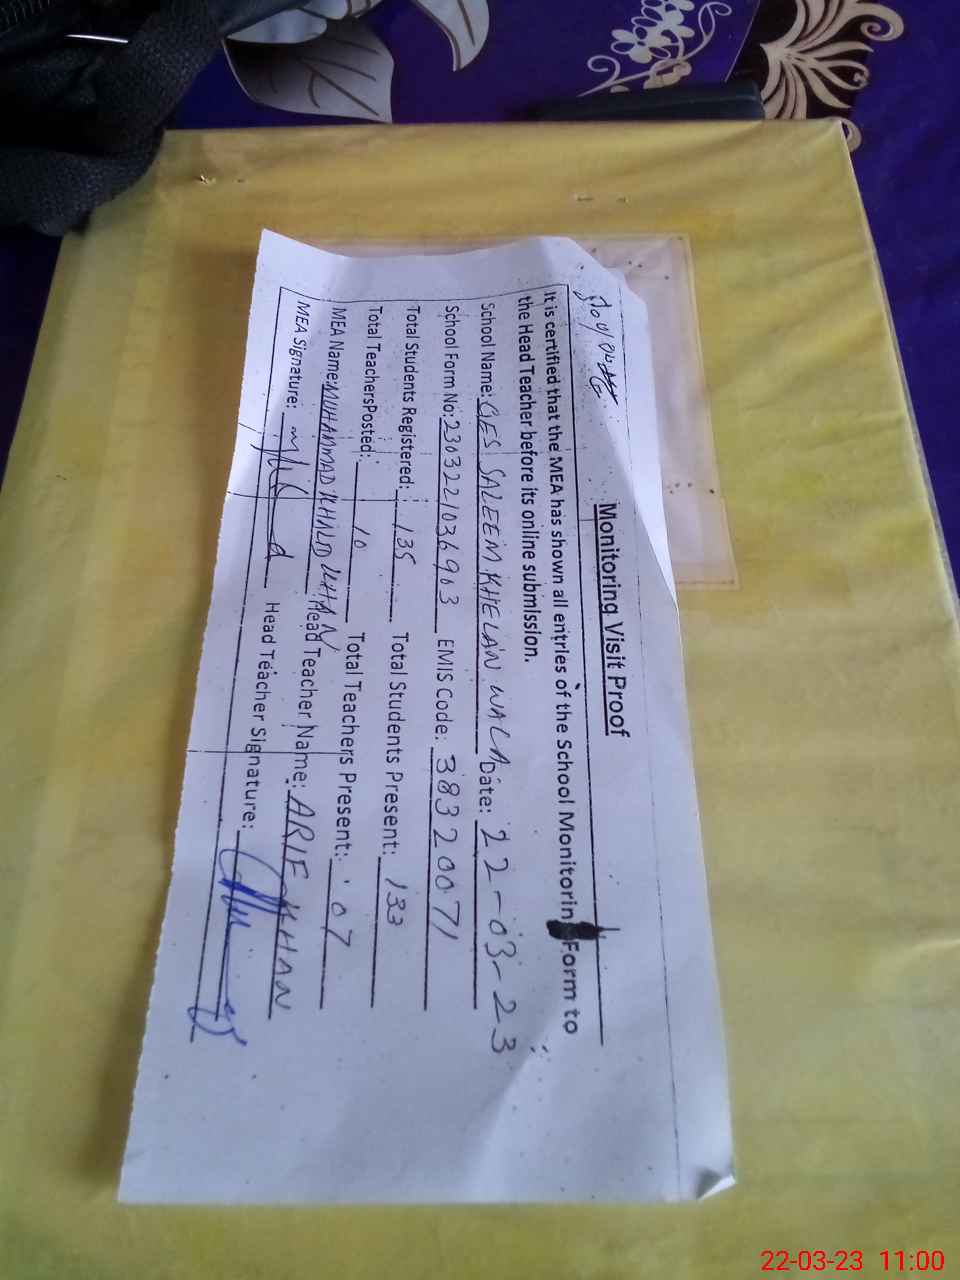 Monitoring Visit Proof
It is certified that the MEA has shown all entries of the School Monitorin Form to
the Head Teacher before its online submission.
School Name: GES SALEEM KHELAN WALA Date: 22-03-23
School Form No: 2303221036903 EMIS Code: 38320071
Total Students Registered: 135 Total Students Present: 133
Total TeachersPosted: 10 Total Teachers Present: 07
MEA Name: MUHAMMAD KHALID KHAN Head Teacher Name: ARIF KHAN
MEA Signature: Head Teacher Signature:
22-03-23 11:00